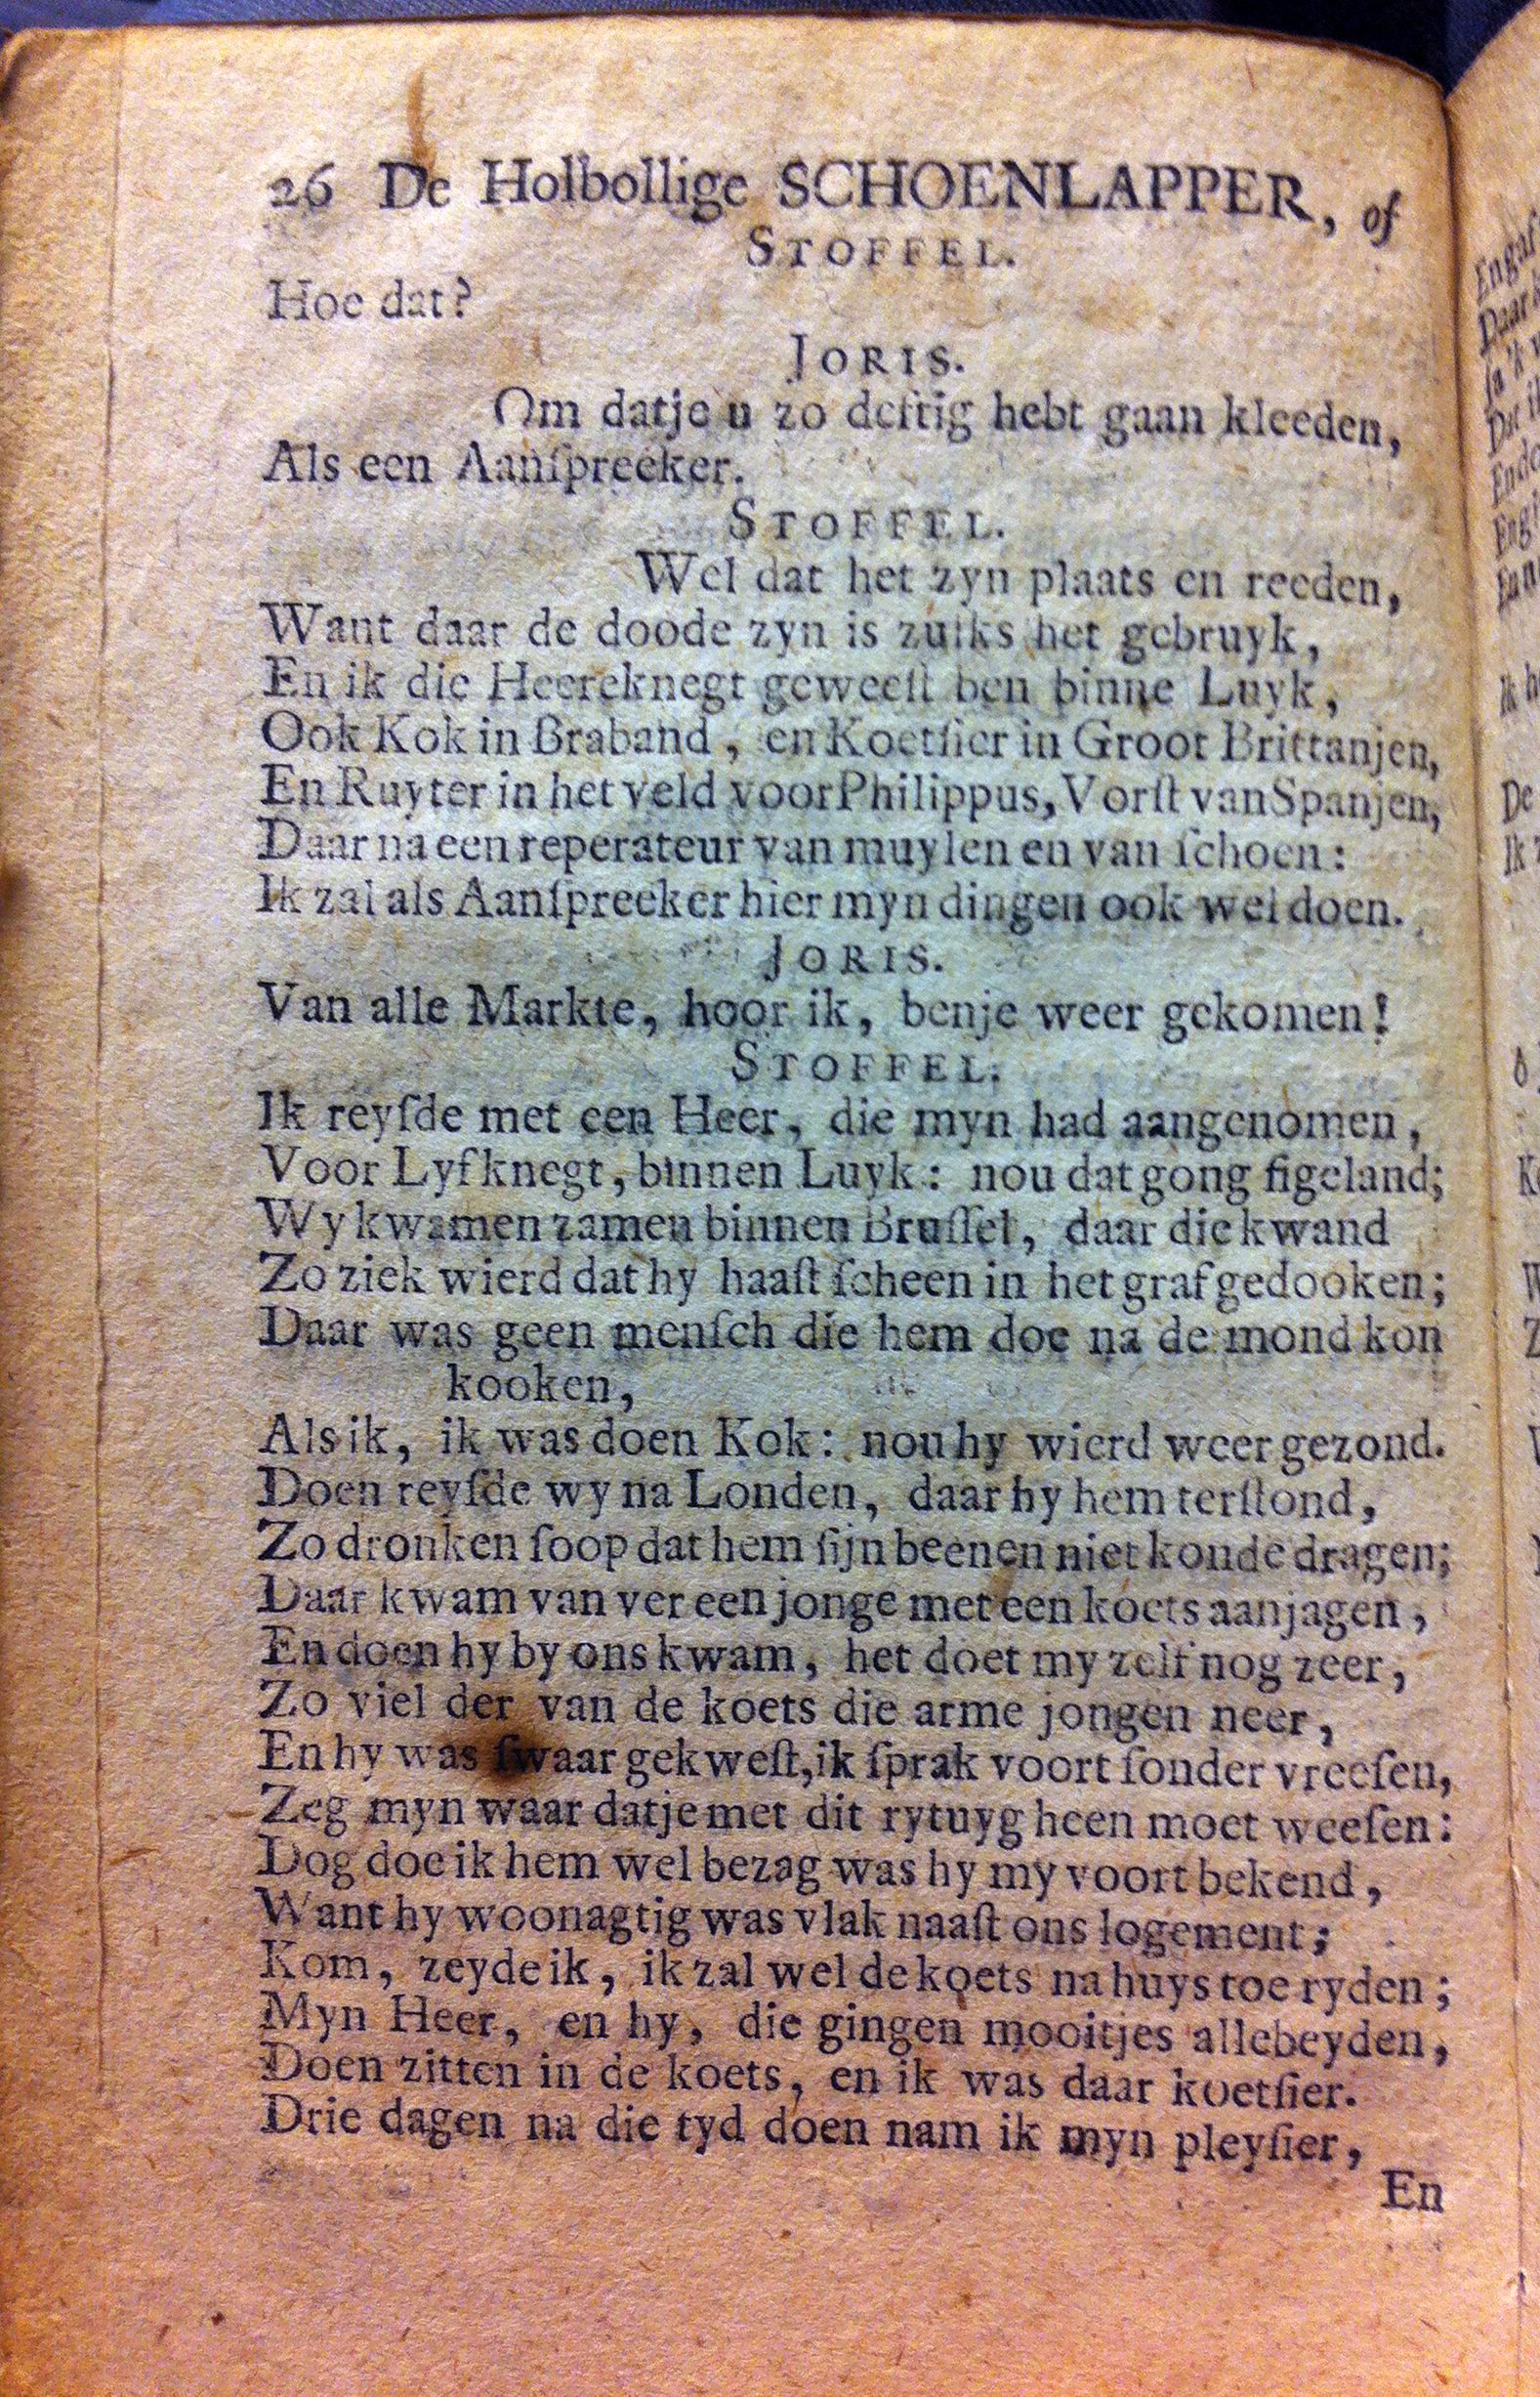 26 De Holbollige SCHOENLAPPER, of
STOFFEL.
Hoe dat?
JORIS.
Om datje u zo deftig hebt gaan kleeden,
Als een Aanſpreeker.
STOFFEL.
Wel dat het zyn plaats en reeden,
Want daar de doode zyn is zulks het gebruyk,
En ik die Heereknegt geweeſt ben binne Luyk,
Ook Kok in Braband, en Koetſier in Groot Brittanjen,
En Ruyter in het veld voor Philippus, Vorſt van Spanjen,
Daar na een reperateur van muylen en van ſchoen:
Ik zal als Aanſpreeker hier myn dingen ook wel doen.
JORIS.
Van alle Markte, hoor ik, benje weer gekomen!
STOFFEL.
Ik reyſde met een Heer, die myn had aangenomen,
Voor Lyfknegt, binnen Luyk: nou dat gong figeland;
Wy kwamen zamen binnen Bruſſel, daar die kwand
Zo ziek wierd dat hy haaſt ſcheen in het graf gedooken;
Daar was geen menſch die hem doe na de mond kon
kooken,
Als ik, ik was doen Kok: nou hy wierd weer gezond.
Doen reyſde wy na Londen, daar hy hem terſtond,
Zo dronken ſoop dat hem ſijn beenen niet konde dragen;
Daar kwam van ver een jonge met een koets aanjagen,
En doen hy by ons kwam, het doet my zelf nog zeer,
Zo viel der van de koets die arme jongen neer,
En hy was ſwaar gekweſt, ik ſprak voort ſonder vreeſen,
Zeg myn waar datje met dit rytuyg heen moet weeſen:
Dog doe ik hem wel bezag was hy my voort bekend,
Want hy woonagtig was vlak naaſt ons logement;
Kom, zeyde ik, ik zal wel de koets na huys toe ryden;
Myn Heer, en hy, die gingen mooitjes allebeyden,
Doen zitten in de koets, en ik was daar koetſier.
Drie dagen na die tyd doen nam ik myn pleyſier,
En